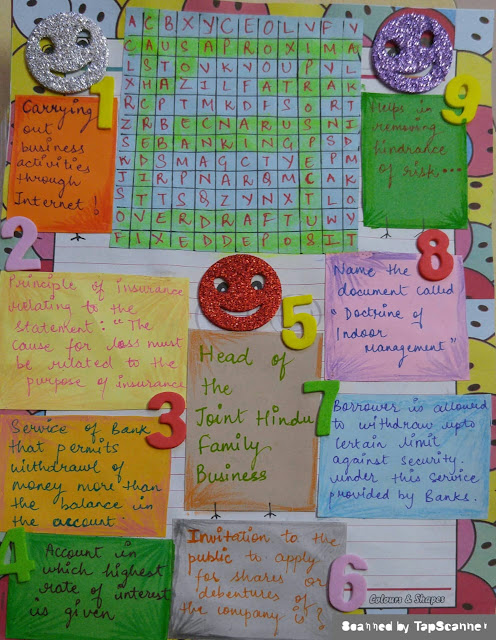 A C B X Y C E O L V F V
C A U S A P R O X I M A
L S T O V K V O U P V L
X H A Z I L F A T R A K
R C P T M K D F S O R T
Z R B E C N A R U S N I
S E B A N K I N G P S D
K D S M A G C T Y E P M
J I R P N A R Q M C A K
S T T S Q Z Y N X T L O
O V E R D R A F T U W Y
F I X E D D E P O S I T
1
Carrying
out
business
activities
through
Internet!
2
Principle of insurance
relating to the
statement: "The
cause for loss must
be related to the
purpose of insurance
3
Service of Bank
that permits
withdrawl of
money more than
the balance in
the account.
4
Account in
which highest
rate of interest
is given
5
Head of
the
Joint Hindu
Family
Business
6
Invitation to the
public to apply
for shares or
debentures of
the company is?
7
Borrower is allowed
to withdraw upto
certain limit
against security.
under this service
provided by Banks.
8
Name the
document called
"Doctrine of
Indoor
Management"
9
Helps in
removing
hindrance
of risk...
Colours & Shapes
Scanned by TapScanner